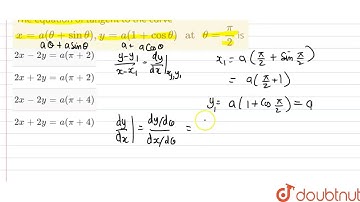 The equation of tangent to the curve
x = a(θ + sin θ), y = a(1 + cos θ) at θ = π/2 is
aθ + a sinθ a + a cosθ
2x − 2y = a(π + 2)
2x + 2y = a(π + 2)
2x − 2y = a(π + 4)
2x + 2y = a(π + 4)
y-y₁/x-x₁ = dy/dx |x₁,y₁
x₁ = a(π/2 + sin π/2)
= a(π/2 + 1)
y₁ = a(1 + cos π/2) = a
dy/dx | = dy/dθ / dx/dθ =
doubtnut